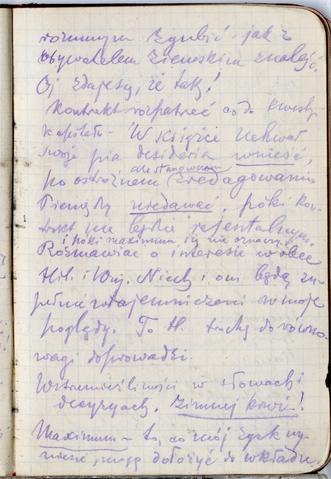 rozumnym zgubić, jak z
obywatelem ziemskim znaleźć.
Oj zdaje się, że tak!
Kontrakt rozpatrzeć co do kwestyi
kapitału - W księdze uchwał
swoje pia desideria wnieść,
po ostrożnem ale stanowczem zredagowaniu
Pieniędzy nie dawać, póki kon-
trakt nie będzie rejentalnym.
i póki maximum się nie oznaczy
Rozmawiać o interesie w obec
H. i Niech i oni będą zu-
pełnie wtajemniczeni w moje
poglądy. To H. trochę do równo-
wagi doprowadzi.
Wstrzemięźliwości w słowach i
decyzyach. Zimnej krwi!
Maximum - to, co mój zysk wy-
niesie, mogę dołożyć do wkładu